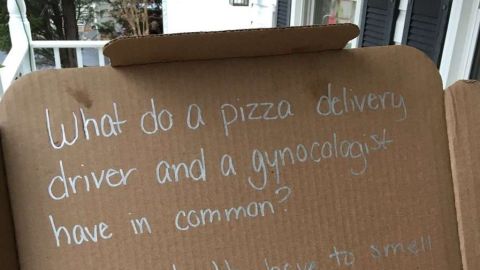 What do a pizza delivery
driver and a gynocologist
have in common?
have to smell